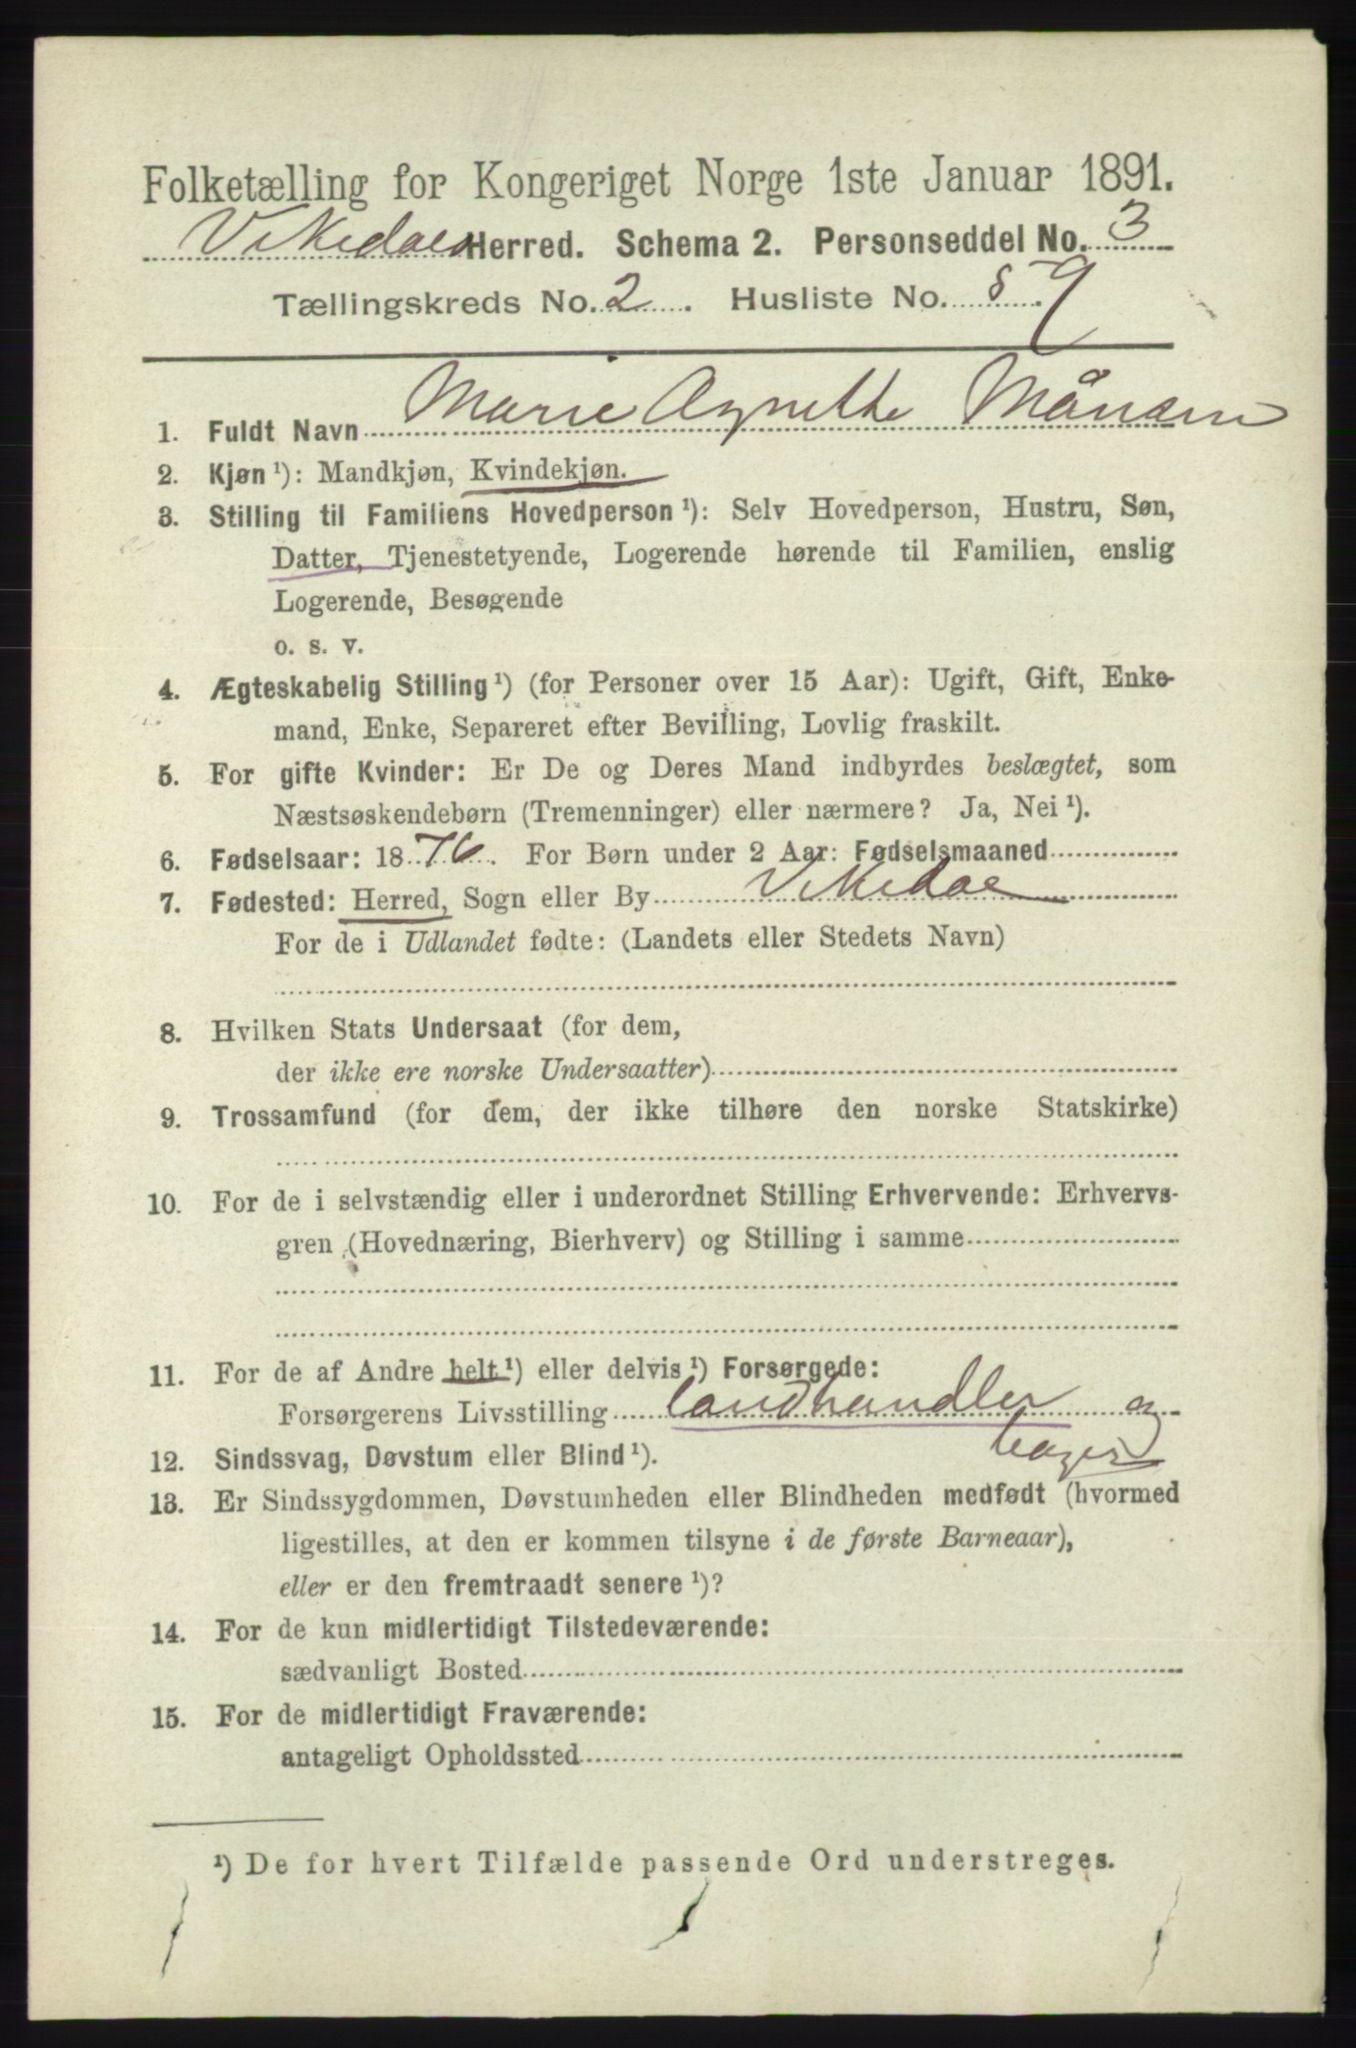 Folketælling for Kongeriget Norge 1ste Januar 1891.
Vikedals Herred. Schema 2. Personseddel No. 3
Tællingskreds No. 2. Husliste No. 89
1. Fuldt Navn Marie Agnethe
2. Kjøn¹): Mandkjøn, Kvindekjøn.
3. Stilling til Familiens Hovedperson¹): Selv Hovedperson, Hustru, Søn,
Datter, Tjenestetyende, Logerende hørende til Familien, enslig
Logerende, Besøgende
o. s. v.
4. Ægteskabelig Stilling¹) (for Personer over 15 Aar): Ugift, Gift, Enke-
mand, Enke, Separeret efter Bevilling, Lovlig fraskilt.
5. For gifte Kvinder: Er De og Deres Mand indbyrdes beslægtet, som
Næstsøskendebørn (Tremenninger) eller nærmere? Ja, Nei¹).
6. Fødselsaar: 1876. For Børn under 2 Aar: Fødselsmaaned
7. Fødested: Herred, Sogn eller By Vikedal
For de i Udlandet fødte: (Landets eller Stedets Navn)
8. Hvilken Stats Undersaat (for dem,
der ikke ere norske Undersaatter)
9. Trossamfund (for dem, der ikke tilhøre den norske Statskirke)
10. For de i selvstændig eller i underordnet Stilling Erhvervende: Erhvervs-
gren (Hovednæring, Bierhverv) og Stilling i samme
11. For de af Andre helt¹) eller delvis¹) Forsørgede:
Forsørgerens Livsstilling Landhandler og
12. Sindssvag, Døvstum eller Blind¹).
13. Er Sindssygdommen, Døvstumheden eller Blindheden medfødt (hvormed
ligestilles, at den er kommen tilsyne i de første Barneaar),
eller er den fremtraadt senere¹)?
14. For de kun midlertidigt Tilstedeværende:
sædvanligt Bosted
15. For de midlertidigt Fraværende:
antageligt Opholdssted
¹) De for hvert Tilfælde passende Ord understreges.